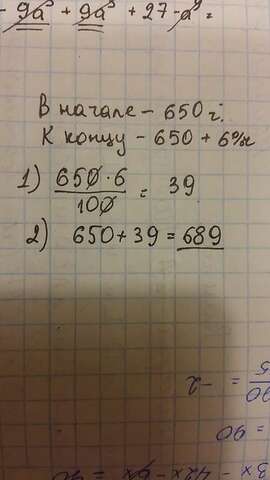 - 9a³ + 9a³ + 27 - a⁹ =
В начале – 650 г.
К концу – 650 + 6%
1) 650 · 6 / 100 = 39
2) 650 + 39 = 689
= -2
= 90
3x - 42x - 6x = 90